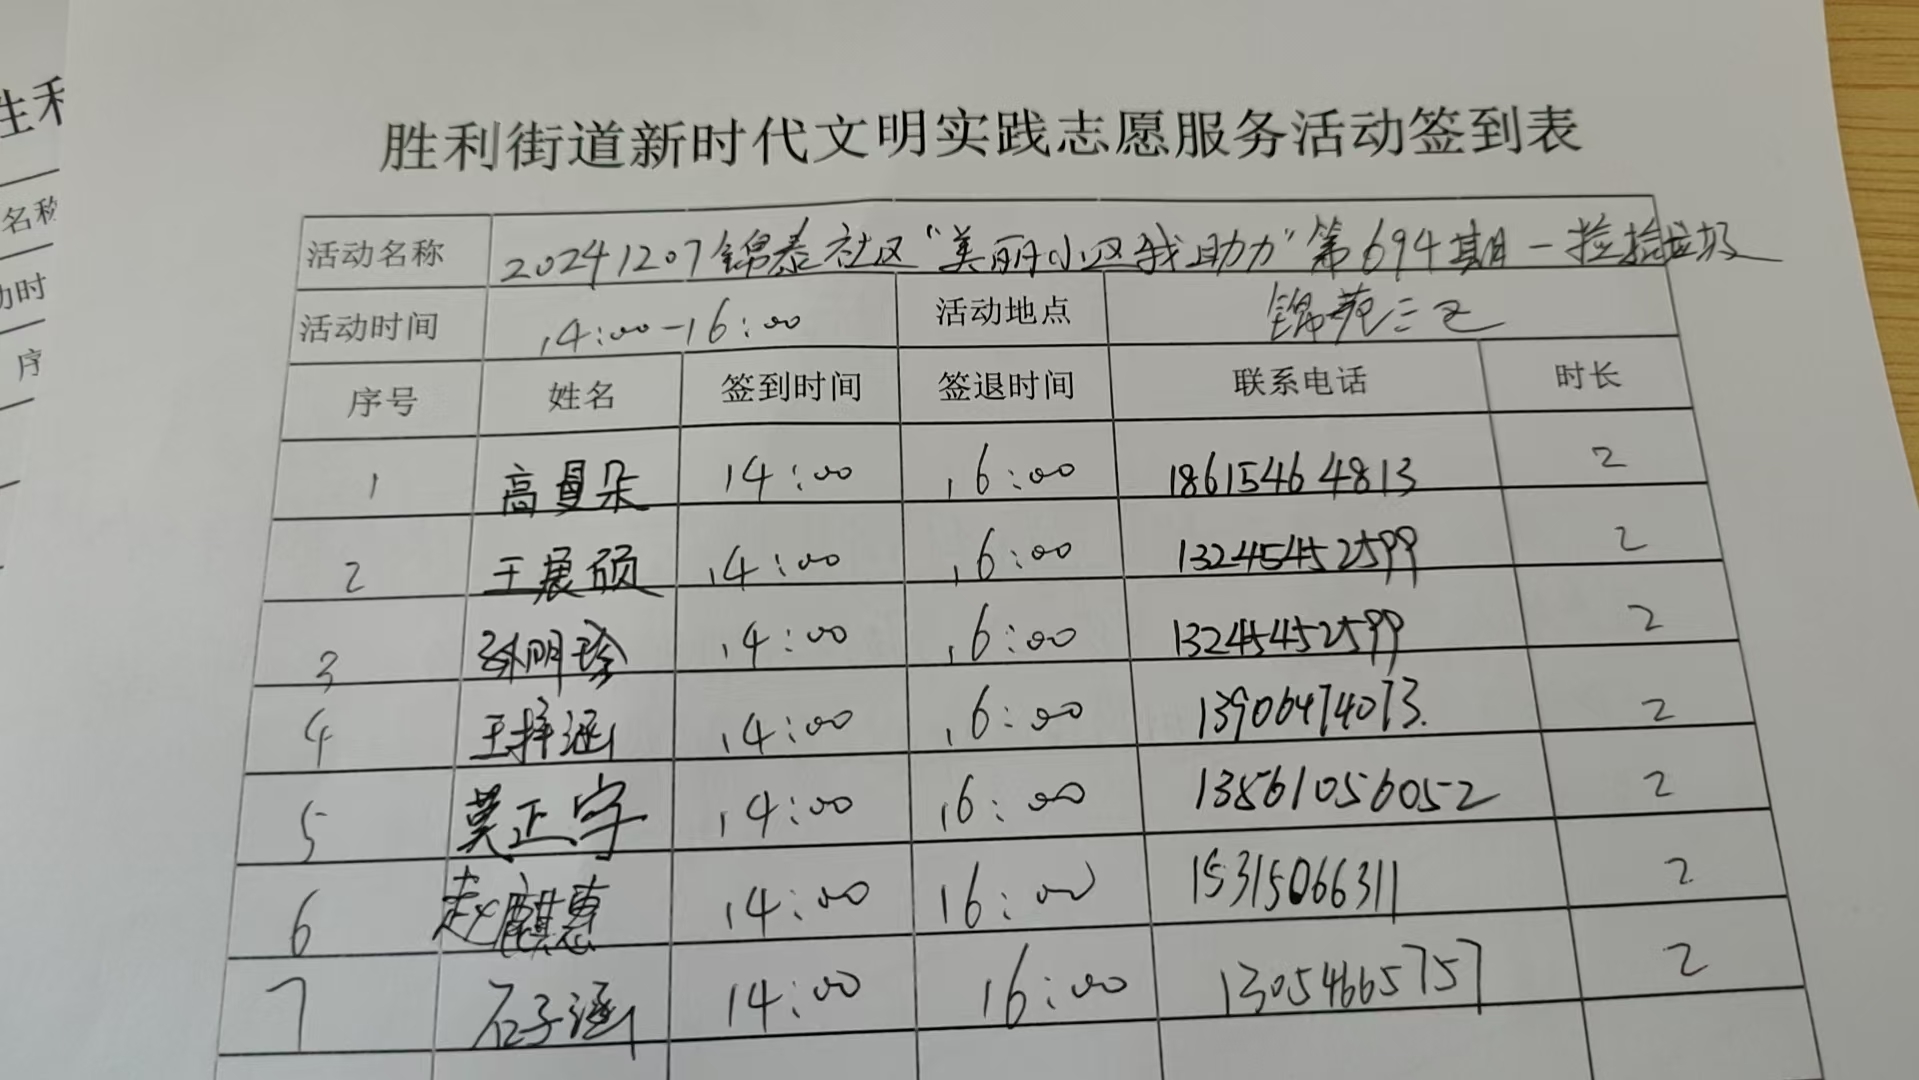 胜利街道新时代文明实践志愿服务活动签到表
活动名称 20241207锦泰社区“美丽小区我助力”第694期—捡拾垃圾
活动时间 14:00-16:00 活动地点 锦苑三区
序号 姓名 签到时间 签退时间 联系电话 时长
1 高曼朵 14:00 16:00 18615464813 2
2 王展硕 14:00 16:00 13245452599 2
3 孙明珍 14:00 16:00 13245452599 2
4 王梓涵 14:00 16:00 13906474073. 2
5 莫正宇 14:00 16:00 13861056052 2
6 赵麒惠 14:00 16:00 15315066311 2
7 石子涵 14:00 16:00 13054665757 2
生利
名称
动时
序